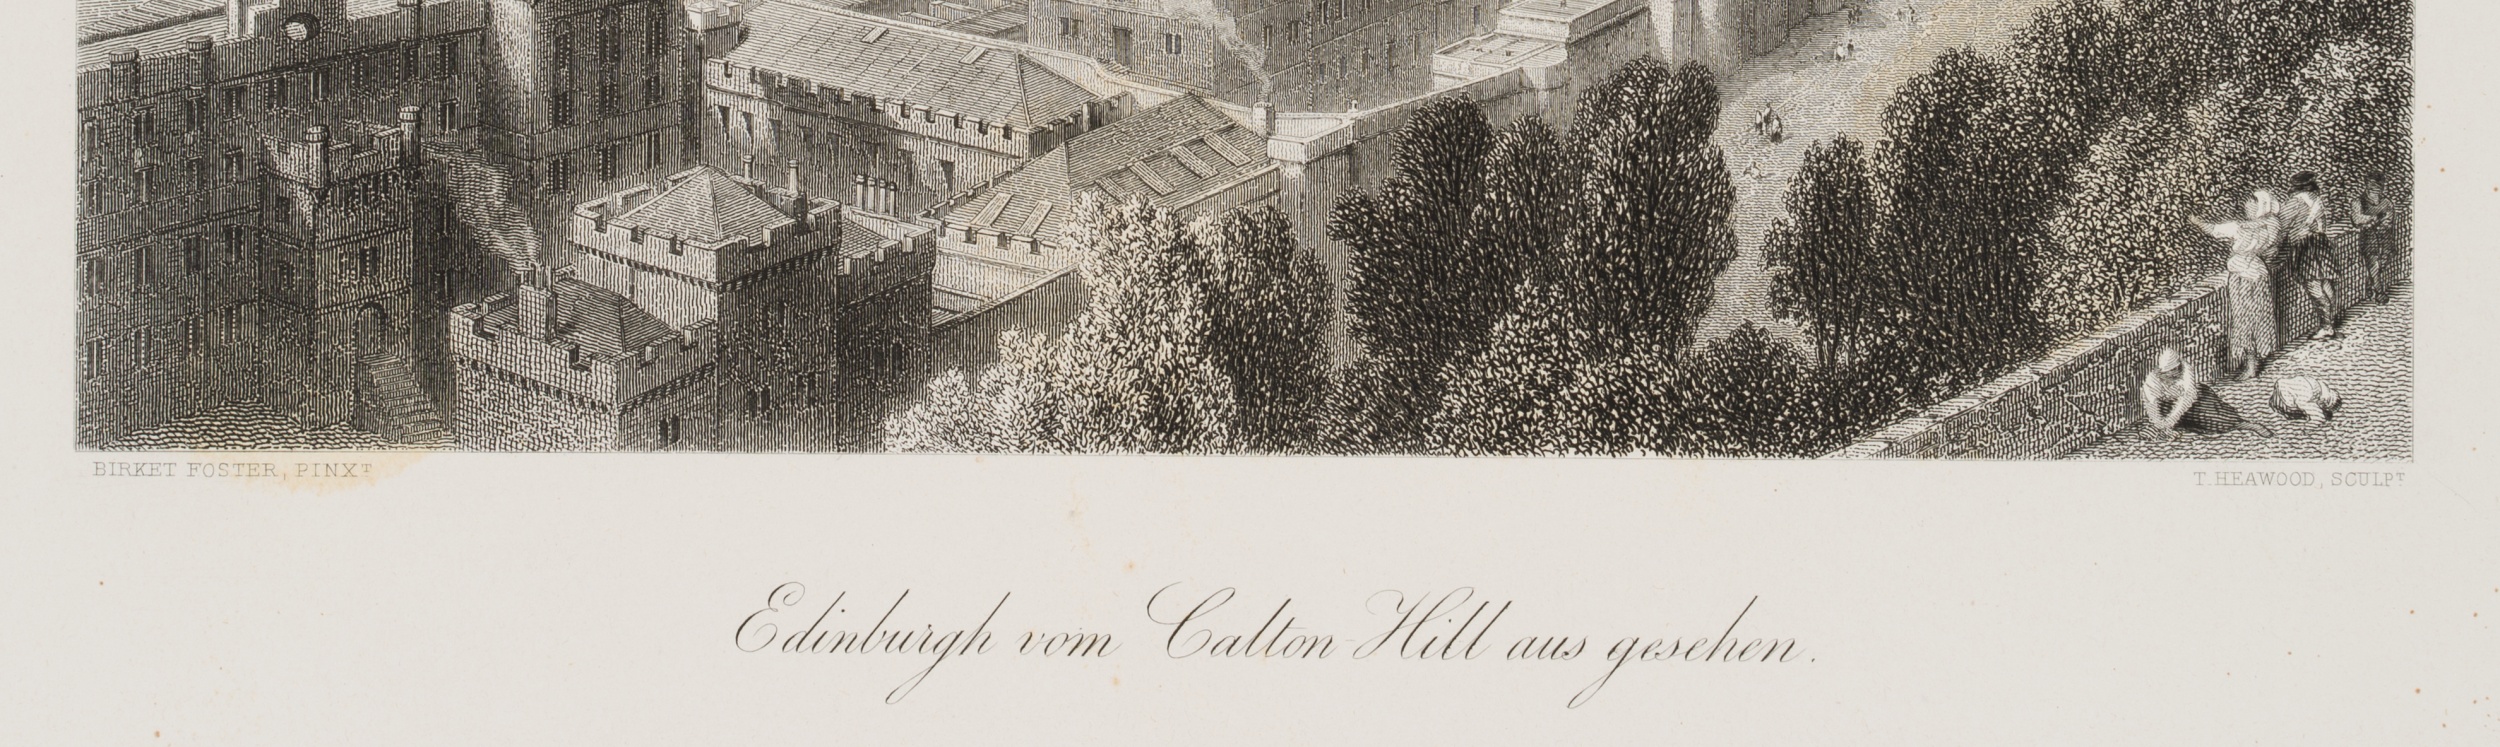 BIRKET FOSTER, PINXT
T. HEAWOOD, SCULPT
Edinburgh vom Calton-Hill aus gesehen.